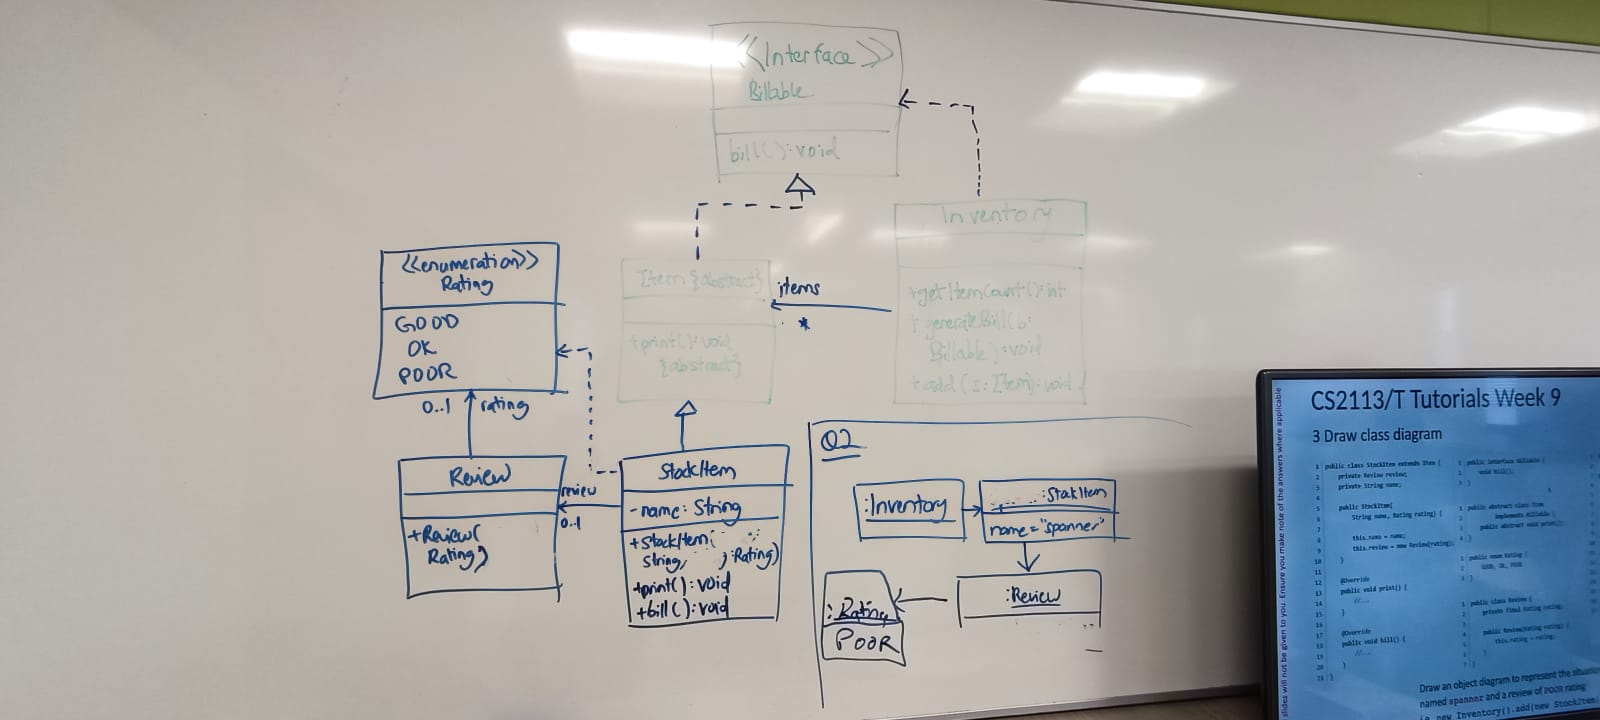 <<Interface>>
Billable
bill(): void
Inventory
+getItemCount(): int
+generateBill(b:
Billable): void
+add(s: Item): void
items
*
Item {abstract}
+print(): void
{abstract}
<<enumeration>>
Rating
GOOD
OK
POOR
0..1 rating
Review
+Review(
Rating)
review
0..1
StockItem
-name: String
+StockItem(
String, : Rating)
+print(): void
+bill(): void
Q2
:Inventory
:StockItem
name="spanner"
:Review
:Rating
POOR
CS2113/T Tutorials Week 9
3 Draw class diagram
slides will not be given to you. Ensure you make note of the answers where applicable
1 public class StockItem extends Item {
2 private Review review;
3 private String name;
4
5 public StockItem(
6 String name, Rating rating) {
7
8 this.name = name;
9 this.review = new Review(rating);
10 }
11
12 @Override
13 public void print() {
14 //...
15 }
16
17 @Override
18 public void bill() {
19 //...
20 }
21 }
1 public interface Billable {
2 void bill();
3 }
1 public abstract class Item
2 implements Billable {
3 public abstract void print();
4 }
1 public enum Rating {
2 GOOD, OK, POOR
3 }
1 public class Review {
2 private final Rating rating;
3
4 public Review(Rating rating) {
5 this.rating = rating;
6 }
7 }
Draw an object diagram to represent the situation
named spanner and a review of POOR rating
new Inventory().add(new StockItem(